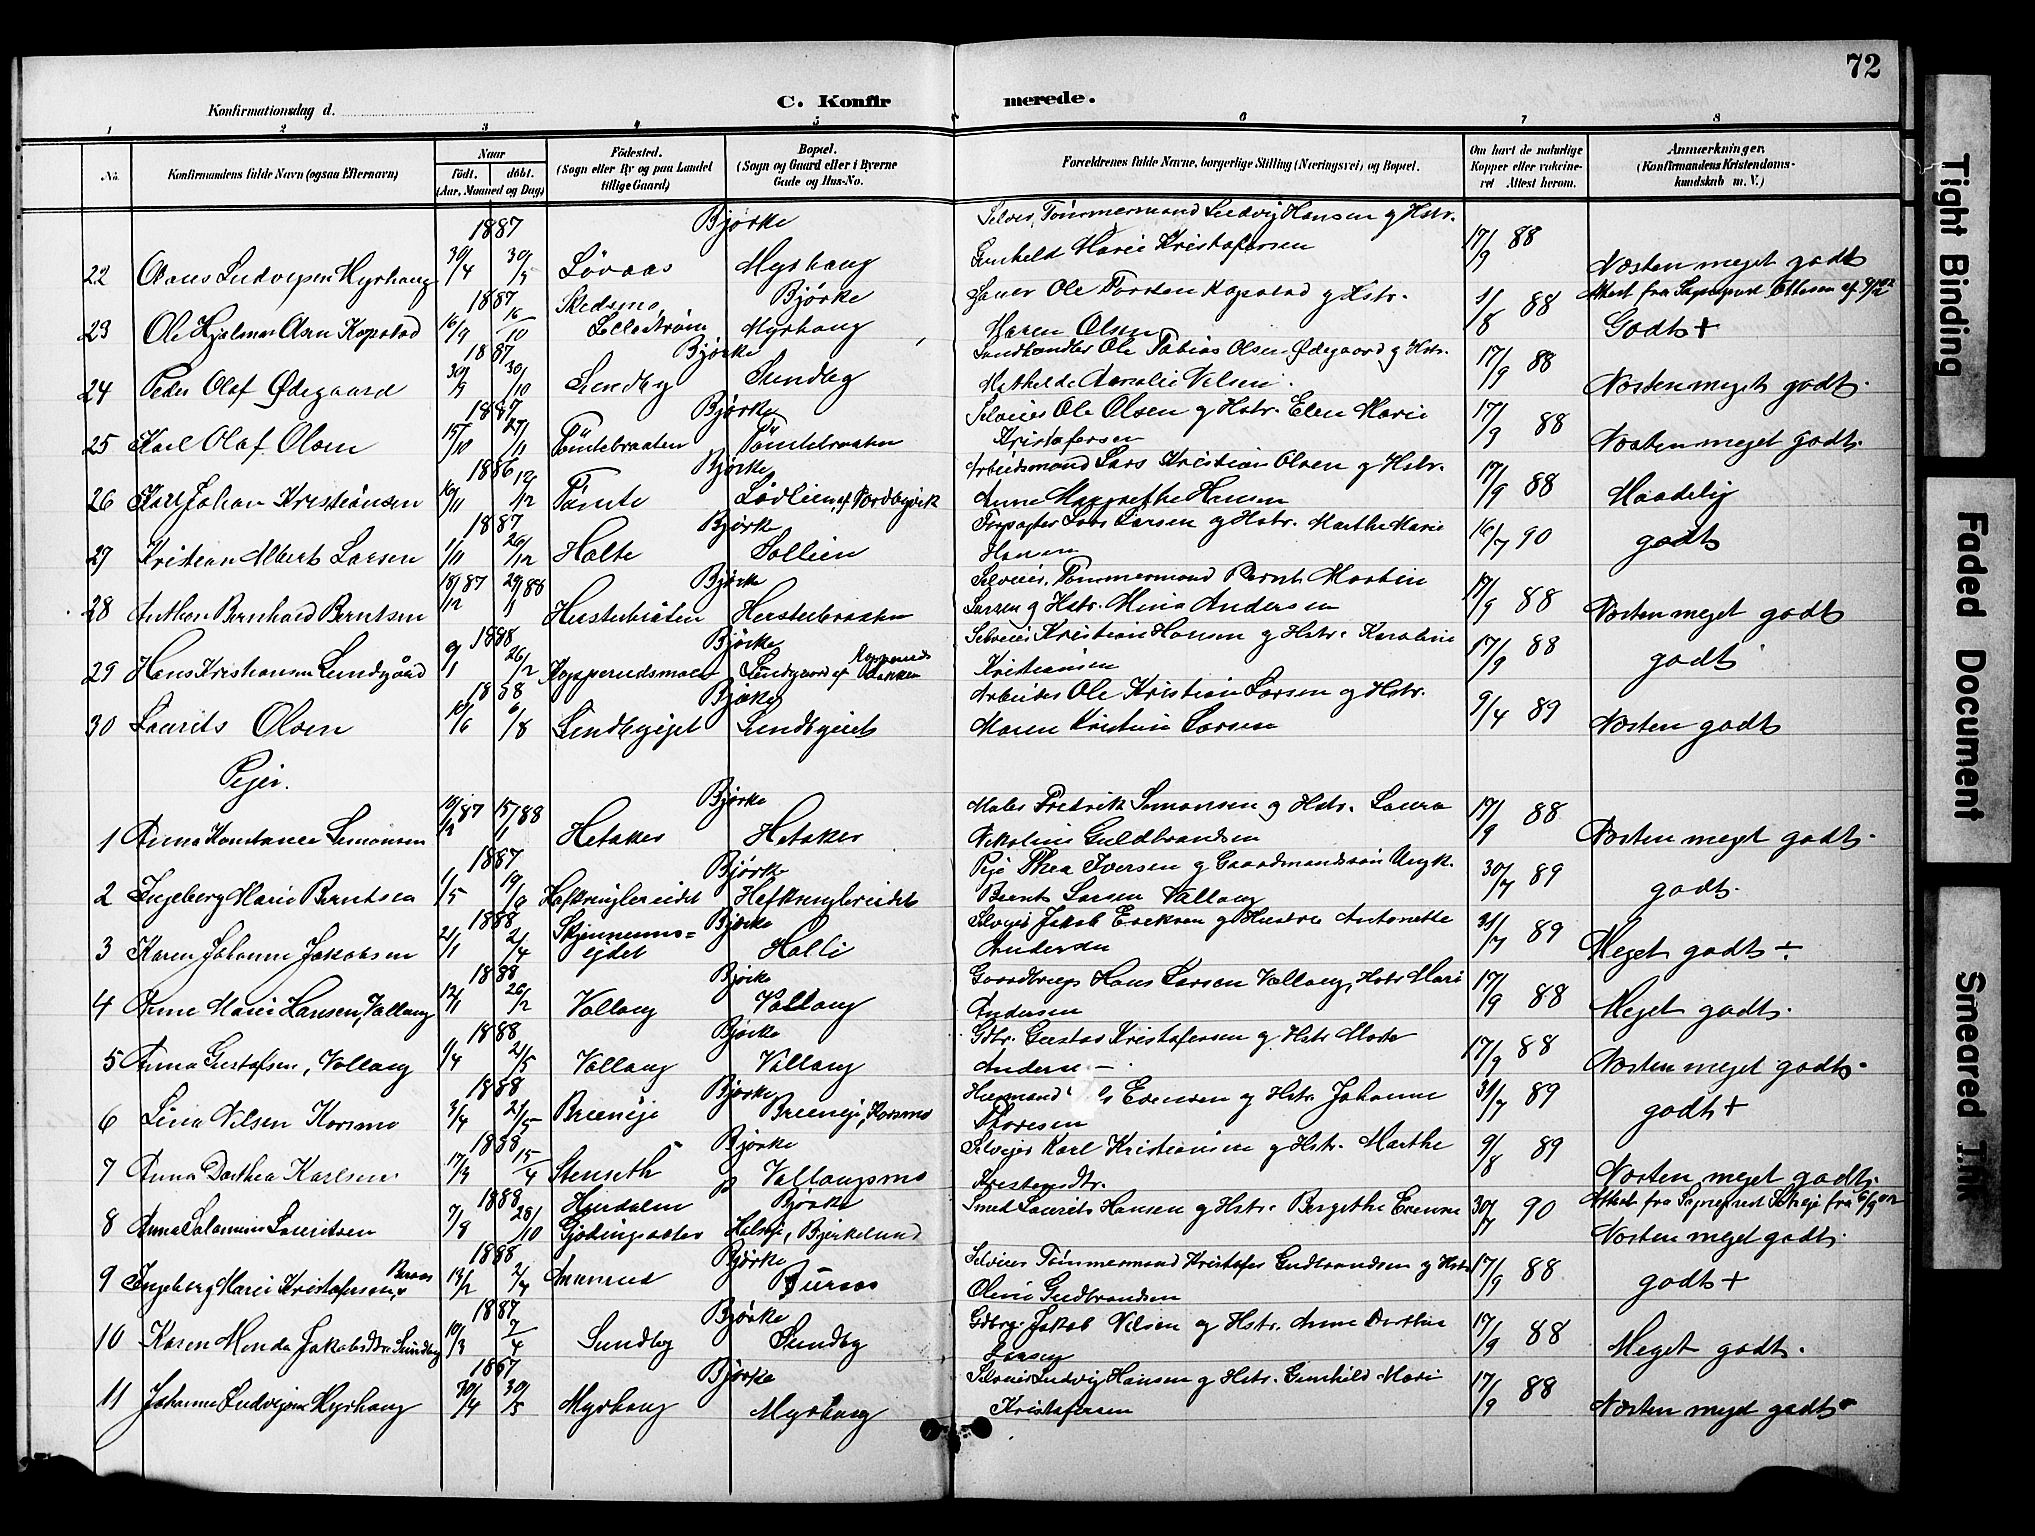 72
Konfirmationsdag d.
C. Konfirmerede.
1 2 3 4 5 6 7 8
No. Konfirmandens fulde Navn (ogsaa Efternavn) Naar født. døbt. (Aar, Maaned og Dag) Fødested. (Sogn eller By og paa Landet tillige Gaard) Bopæl. (Sogn og Gaard eller i Byerne Gade og Hus-No. Forældrenes fulde Navne, borgerlige Stilling (Næringsvei) og Bopæl. Om havt de naturlige Kopper eller vakcineret Attest herom. Anmærkninger. (Konfirmandens Kristendomskundskab m. V.)
1887 Bjørke Selveier, Tömmermand Ludvig Hansen og Hstr.
22 Olaus Ludvigsen Myrhaug 30/4 30/5 Løvaas Myrhaug Gunhild Marie Kristofersen 17/9 88 Næsten meget godt
1887 Skedsmo, Bjørke
23 Ole Hjalmar Olsen Kopstad 16/9 16/10 Lillestrøm Myrhaug Maren Olsen 3/8 88 Godt +
1887 Bjørke Landhandler Ole Tobias Olsen Ødegaard og Hstr.
24 Peder Olaf Ødegaard 30/9 30/10 Sundby Sundby Mathilde Amalie Nilsen. 17/9 88 Næsten meget godt.
1887 Bjørke Selveier Ole Olsen og Hstr. Elen Marie
25 Karl Olaf Olsen 15/10 27/11 Tömtebraaten Tömtebraaten Kristofersen 17/9 88 Næsten meget godt.
1886 Bjørke Arbeidsmand Lars Kristian Olsen og Hstr.
26 Karl Johan Kristiansen 16/11 12/12 Tömte Lødlien, af Nordbyørk Anne Margrethe Hansen 17/9 88 Maadelig
1887 Bjørke Forpagter Lars Larsen og Hstr. Marthe Marie
27 Kristian Albert Larsen 1/11 26/12 Holte Sollien Hansen 16/7 90 godt
Bjørke Selveier, Tömmermand Bernt Martin
28 Anthon Bernhard Berntsen 18/12 87 29/1 88 Hestebraaten Hestebraaten Larsen og Hstr. Mina Andersen 17/9 88 Næsten meget godt
1888 Bjørke Selveier Kristian Hansen og Hstr. Karoline
29 Hans Kristiansen Lundgaard 9/1 26/2 Kopperudsmoen Lundgaard af Kopperudsbakken Kristiansen 17/9 88 godt
1888 Bjørke Arbeider Ole Kristian Larsen og Hstr.
30 Laurits Olsen 10/6 6/8 Sundbyejet Sundbyeiet Maren Kristine Larsen 9/4 89 Næsten godt
Piger.
Bjørke Maler Fredrik Simonsen og Hstr. Laura
1 Anna Konstance Simonsen 87 15/1 88 Hetaker Hetaker Nikoline Guldbrandsen 17/9 88 Næsten meget godt.
1887 Bjørke Pige Thea Iversen og Gaardmandssön Ungk.
2 Ingeborg Marie Berntsen 1/5 19/ Bernt Larsen Vallaug 30/7 89 godt.
1888 Skjønnums= Bjørke Selveier Jakob Eriksen og Hustru Antonette
3 Karen Johanne Jakobsen 21/1 2/4 ejdet Holli Andersen 31/7 89 Meget godt ÷
1888 Bjørke Gaardbrug. Hans Larsen Vallaug, Hstr Mari
4 Anne Marie Hansen, Vallaug 12/1 26/2 Vallaug Vallaug Andersen 17/9 88 Meget godt.
1888 Bjørke Gdbr. Gustav Kristofersen og Hstr Marte
5 Anna Gustafsen, Vallaug 1/4 21/5 Vallaug Vallaug Andersen 17/9 88 Næsten meget godt.
1888 Bjørke Husmand Evensen og Hstr. Johanne
6 Lina Nilsen Korsmo 3/4 21/5 Breeneje Breeneje, Korsmo Thoresen 31/7 89 godt +
1888 Bjørke Selveier Karl Kristiansen og Hstr. Marthe
7 Anna Dorthea Karlsen 17/3 15/4 Stenseth Vallaugsmo Kristensdtr. 9/8 89 Næsten meget godt.
1888 Hurdalen Bjørke Smed Laurits Hansen og Hstr. Bergethe Evensen
8 Anna Salamine Lauritsen 7/8 28/10 Bjerkelund 30/7 90 Næsten meget godt.
1888 Bjørke Selveier Tömmermand Kristofer Gudbrandsen og Hstr
9 Ingeborg Marie Kristofersen, Buraas 13/2 2/4 Buraas Oline Gudbrandsen 17/9 88 godt +
1887 Bjørke Gdbrg. Jakob Nilsen og Hstr. Anne Dorthea
10 Karen Menda Jakobsdtr. Sundby 10/3 7/4 Sundby Sundby Larsen 17/9 88 Meget godt.
1887 Bjørke Selveier Ludvig Hansen og Hstr. Gunhild Mari
11 Johanne Ludvigsen Myrhaug 30/4 30/5 Myrhaug Myrhaug Kristofersen 17/9 88 Næsten meget godt
Tight Binding
Faded Document
Smeared Ink